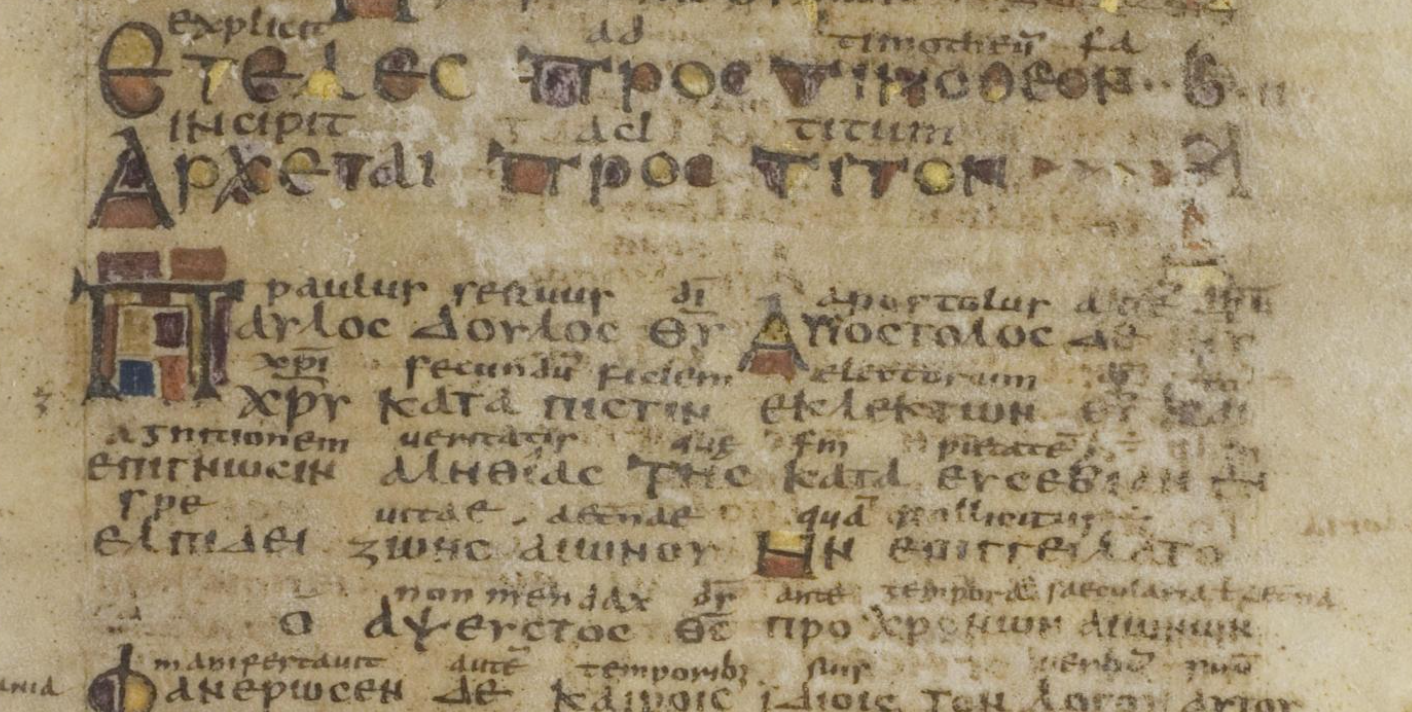 explicit ad timotheū
ετελεσ προσ τιμοθεον · · β
incipit ad titum
αρχεται προσ τιτον
paulus seruus dī apostolus
παυλοσ δουλοσ θ̄ῡ αποστολοσ δε
xp̄i secundū fidem electorum
χ̄ρ̄υ κατα πιστιν εκλεκτων θ̄ῡ και
agnitionem ueritatis quę scđm pietatē
επιγνωσιν αληθιασ τησ κατα ευσεβιαν
spe uitae aetnae quā pollicitus
ελπιδει ζωησ αιωνου ην επιγγειλατο
non mendax ds̄ ante tempora saecularia ł aetna
ο αψευστοσ θ̄σ̄ προ χρονων αιωνων
manifestauit autē temporibꝫ suis uerbū
φανερωσεν δε καιροισ ιδιοισ τον λογον αυτου